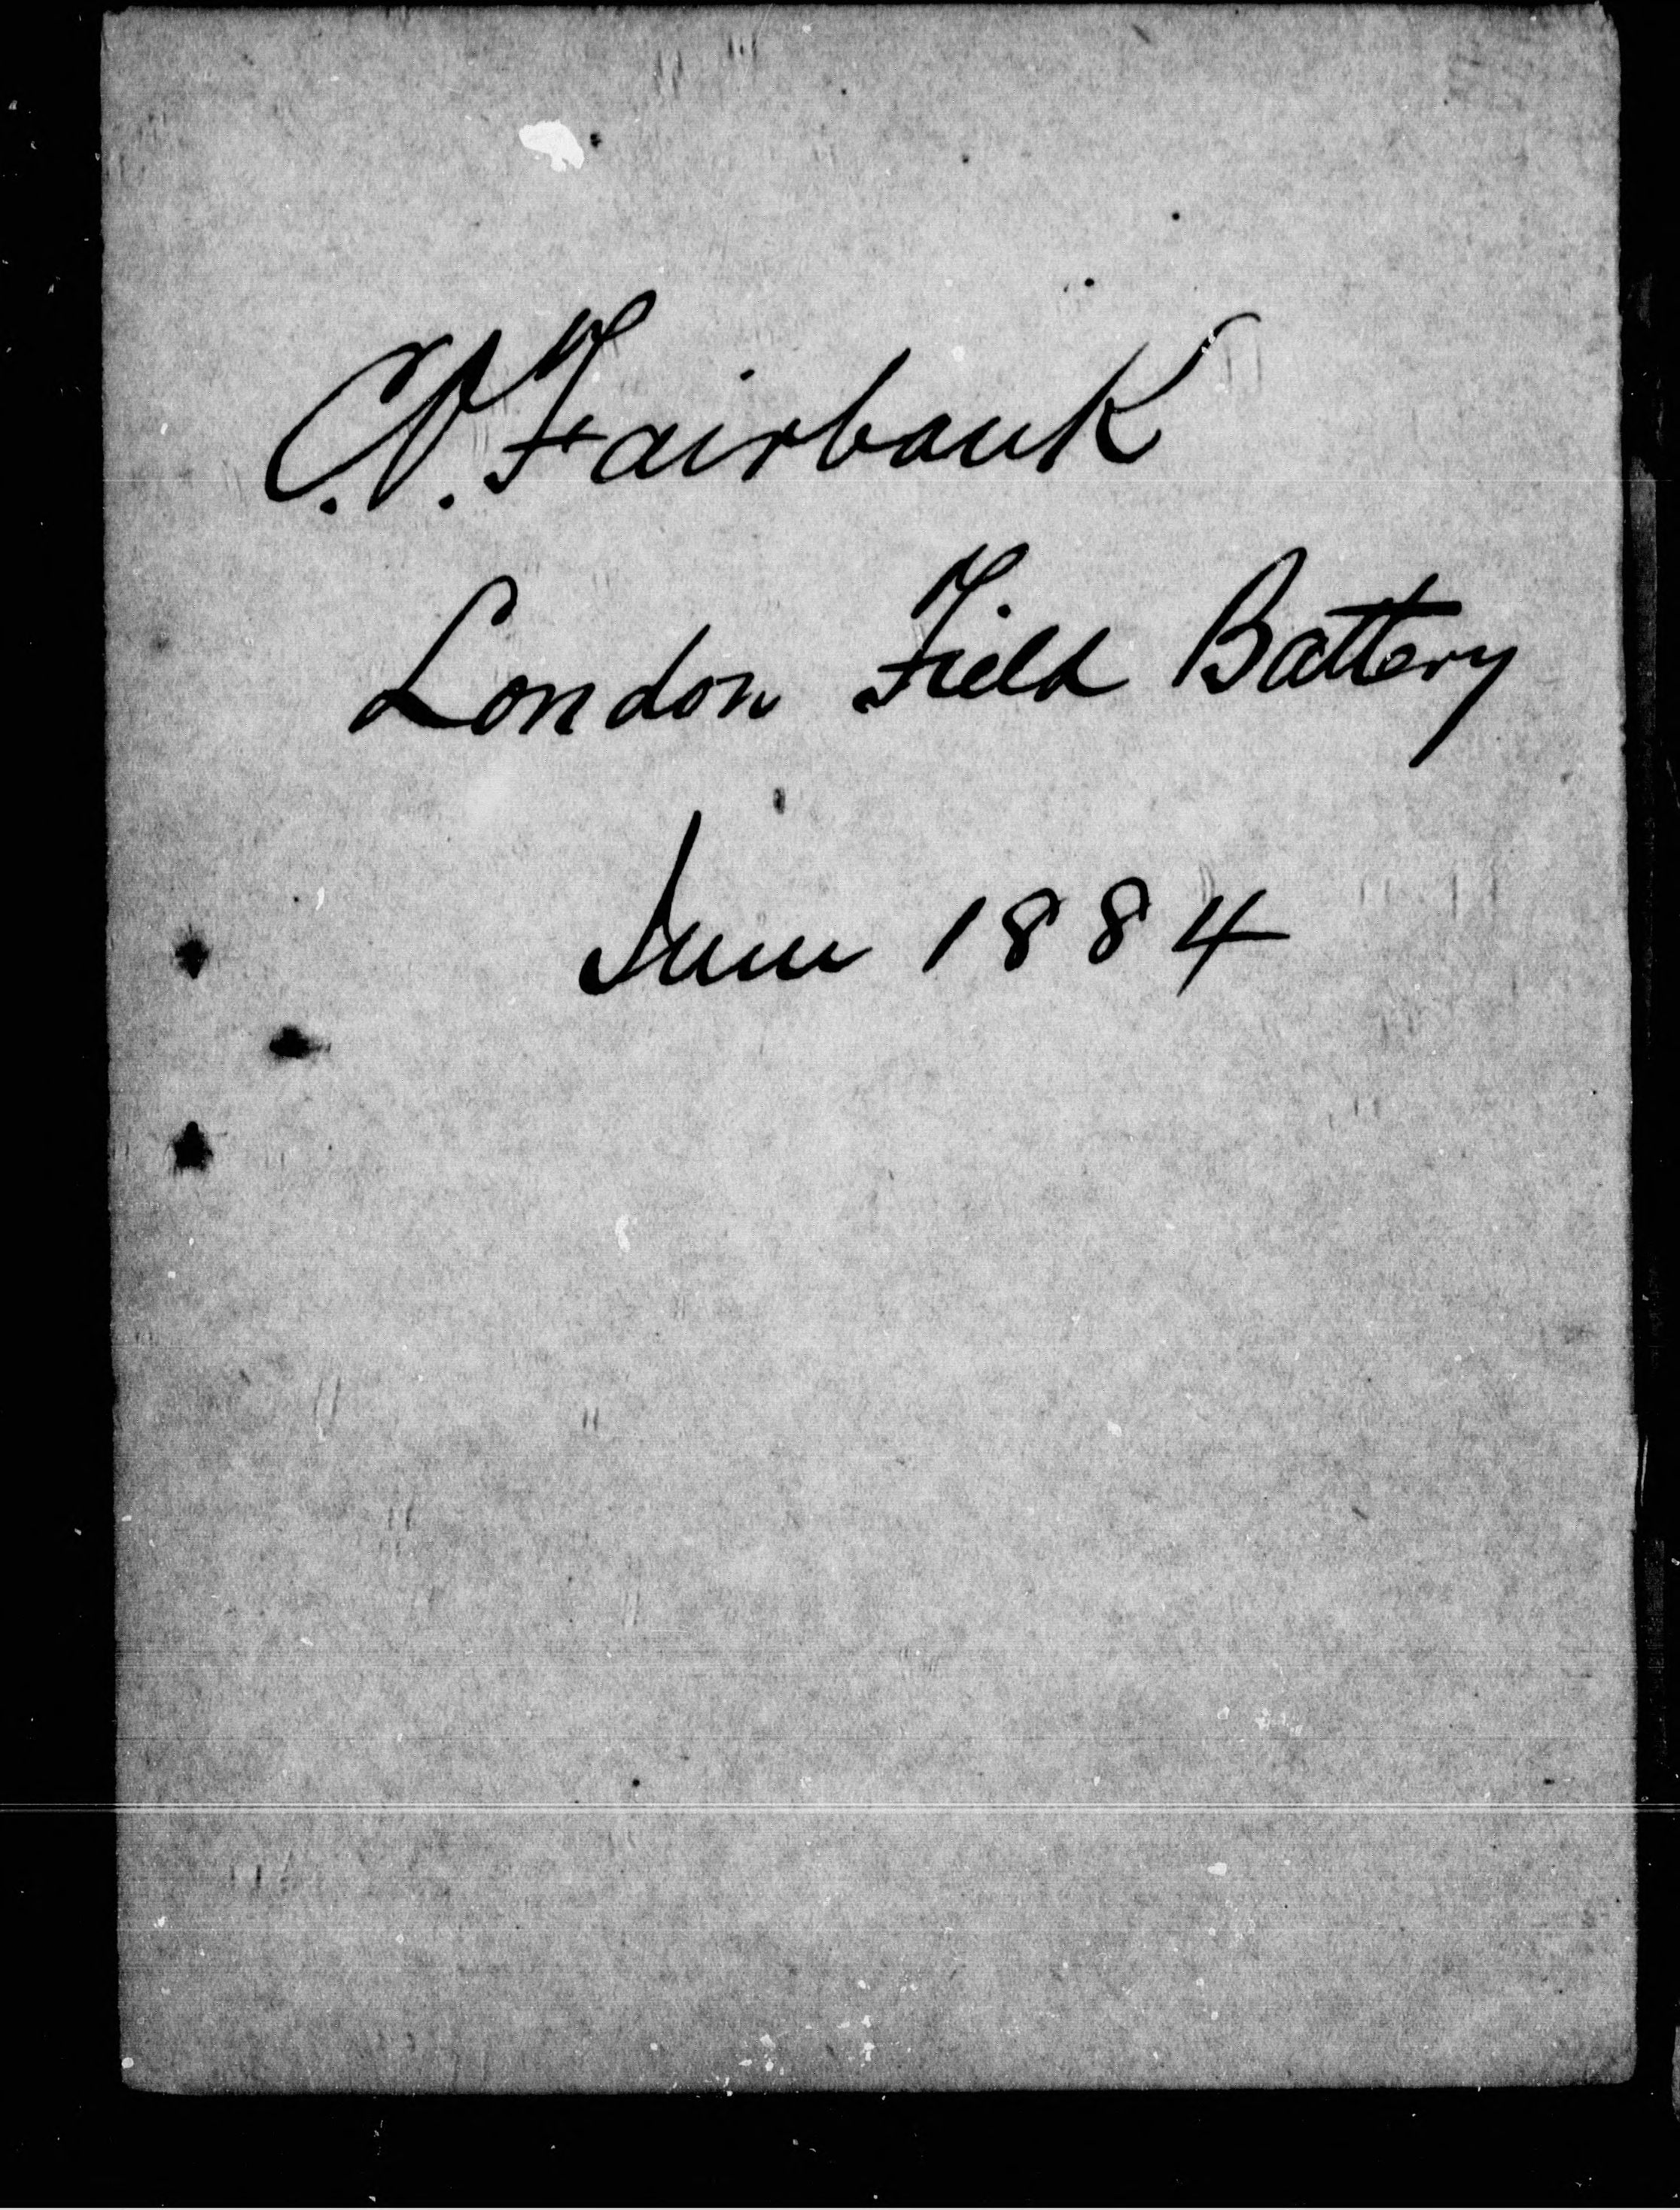 C.O. Fairbank
London Field Battery
June 1884